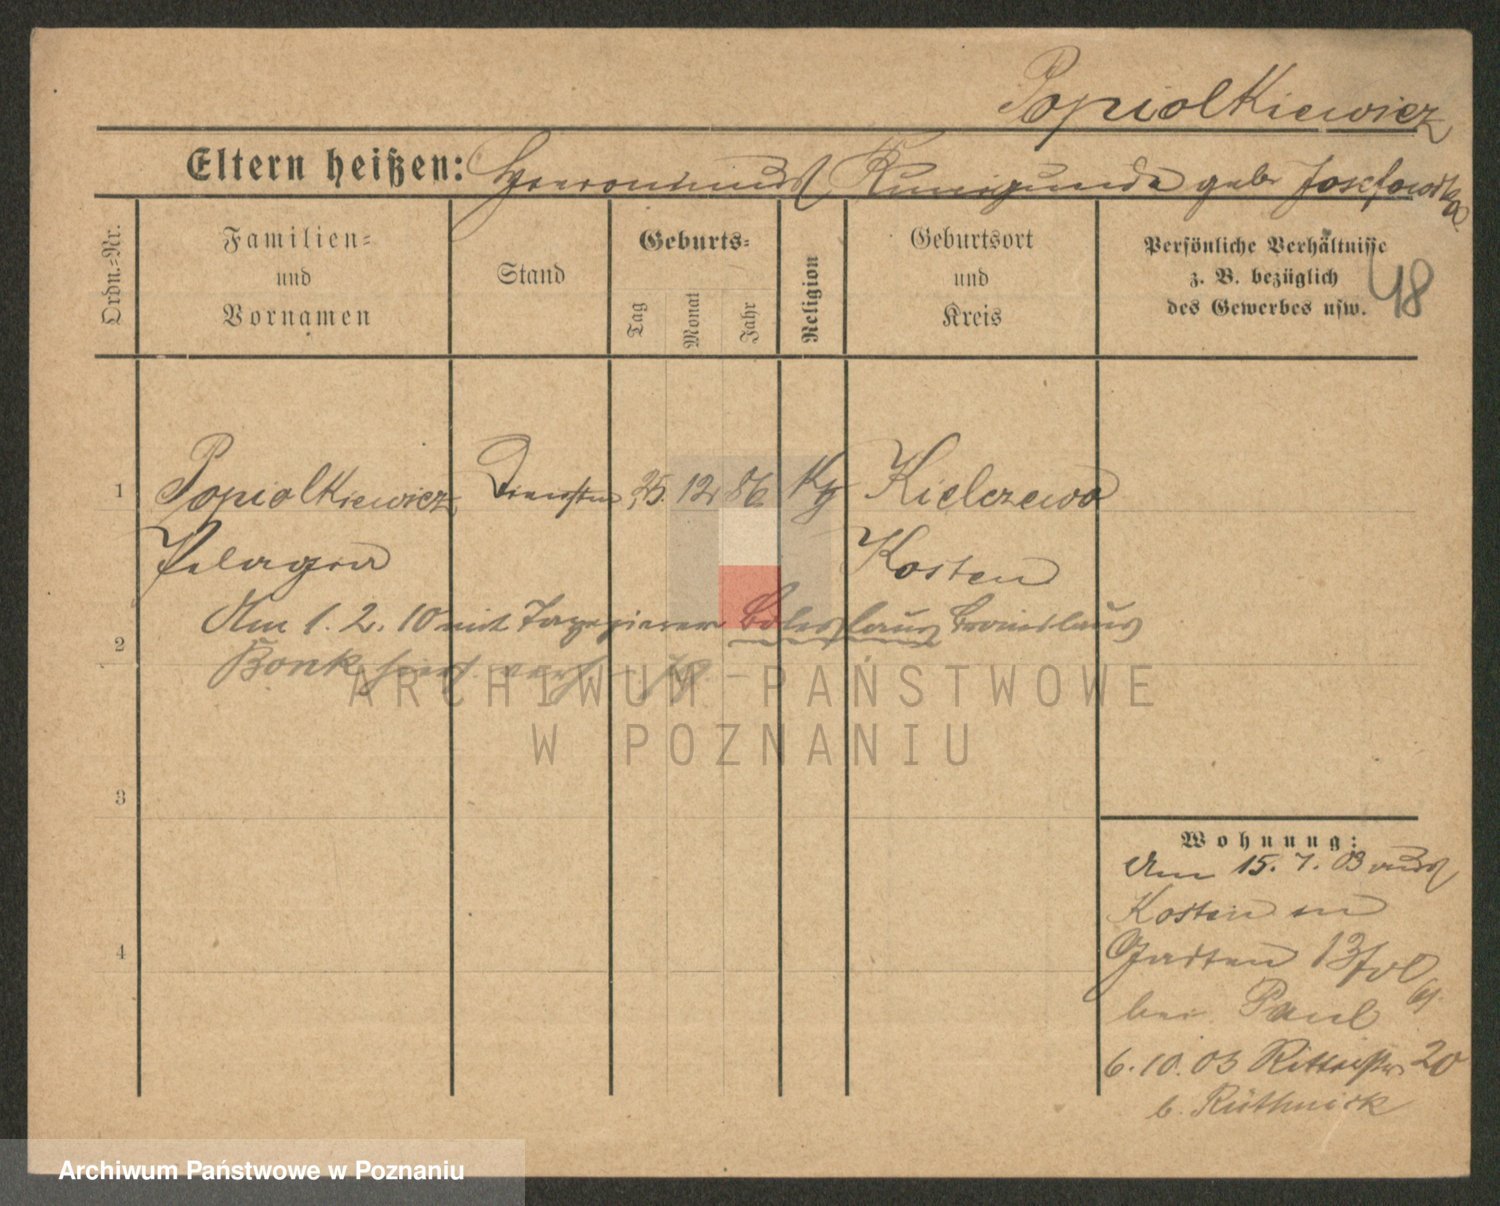 Popiolkiewicz
Eltern heißen: Hieronimus, Kunigunde geb Josefowska
Ordn.-Nr.
Familien-
und
Vornamen
Stand
Geburts-
Tag
Monat
Jahr
Religion
Geburtsort
und
Kreis
Persönliche Verhältnisse
z. B. bezüglich
des Gewerbes usw.
48
1 Popiolkiewicz 25. 12. 86 Kielczewo
Pelagia Kosten
Am 1. 2. 10 mit Tapezierer Boleslaus Bronislaus
2
Bonk
3
4
Wohnung:
Am 15. 7. 03 aus
Kosten in
Garten 13
bei Paul
6. 10. 03 Ritterstr 20
b.
ARCHIWUM PAŃSTWOWE
W POZNANIU
Archiwum Państwowe w Poznaniu